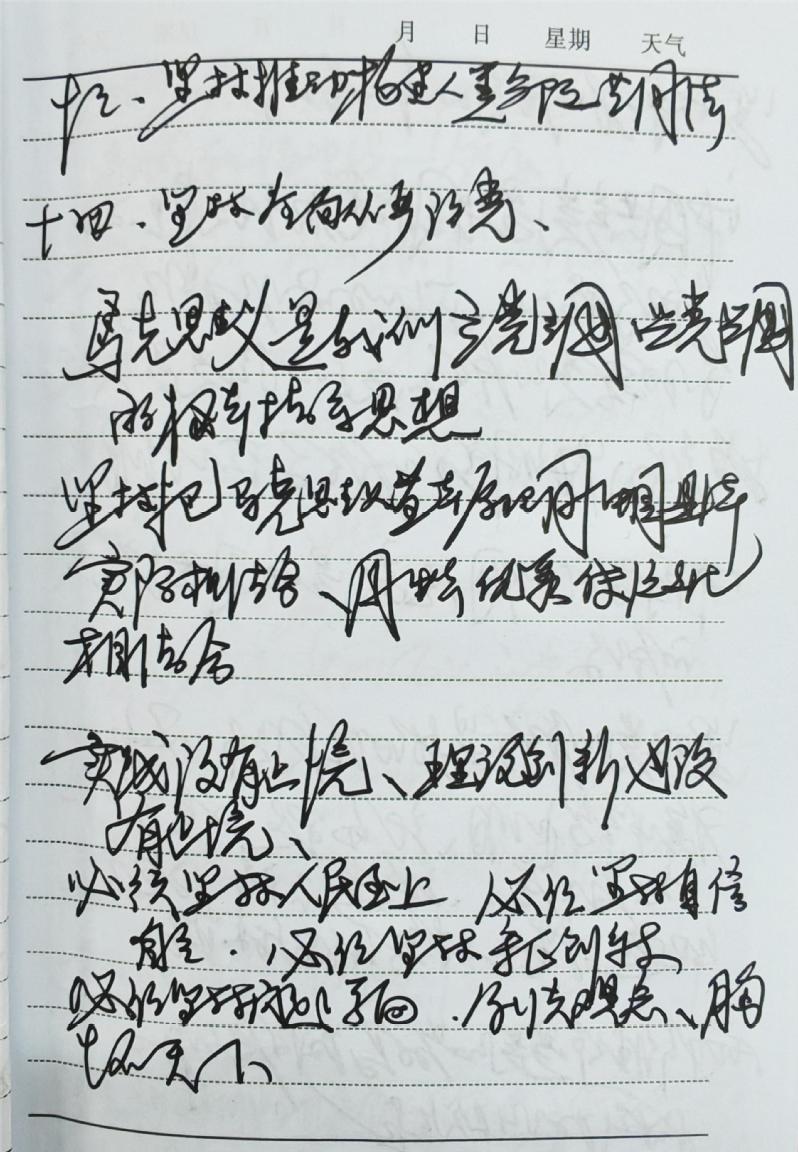 月 日 星期 天气
十三、坚持推动构建人类命运共同体
十四、坚持全面从严治党、
马克思主义是我们立党立国 兴党兴国
的根本指导思想
坚持把马克思主义基本原理同中国具体
实际相结合、同中华优秀传统文化
相结合
实践没有止境、理论创新也没
有止境、
必须坚持人民至上 必须坚持自信
自立.必须坚持守正创新
必须坚持问题导向.系统观念、胸
怀天下